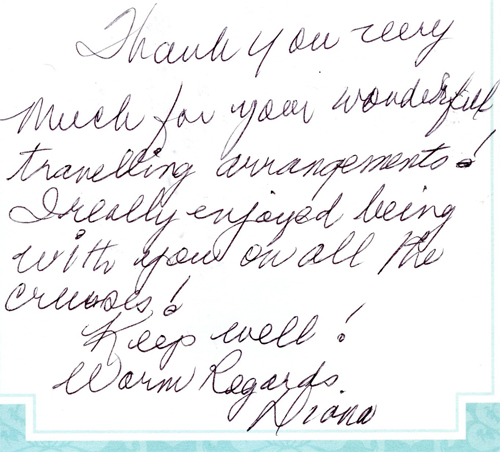 Thank you very
much for your wonderful
travelling arrangements!
I really enjoyed being
with you on all the
cruises!
Keep well!
Warm Regards.
Diana